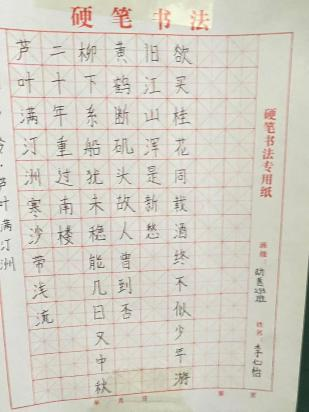 硬笔书法
芦叶满汀洲寒沙带浅流
二十年重过南楼
柳下系船犹未稳能几日又中秋
黄鹤断矶头故人曾到否
旧江山浑是新愁
欲买桂花同载酒终不似少年游
硬笔书法专用纸
班级:
姓名
芦叶满汀洲